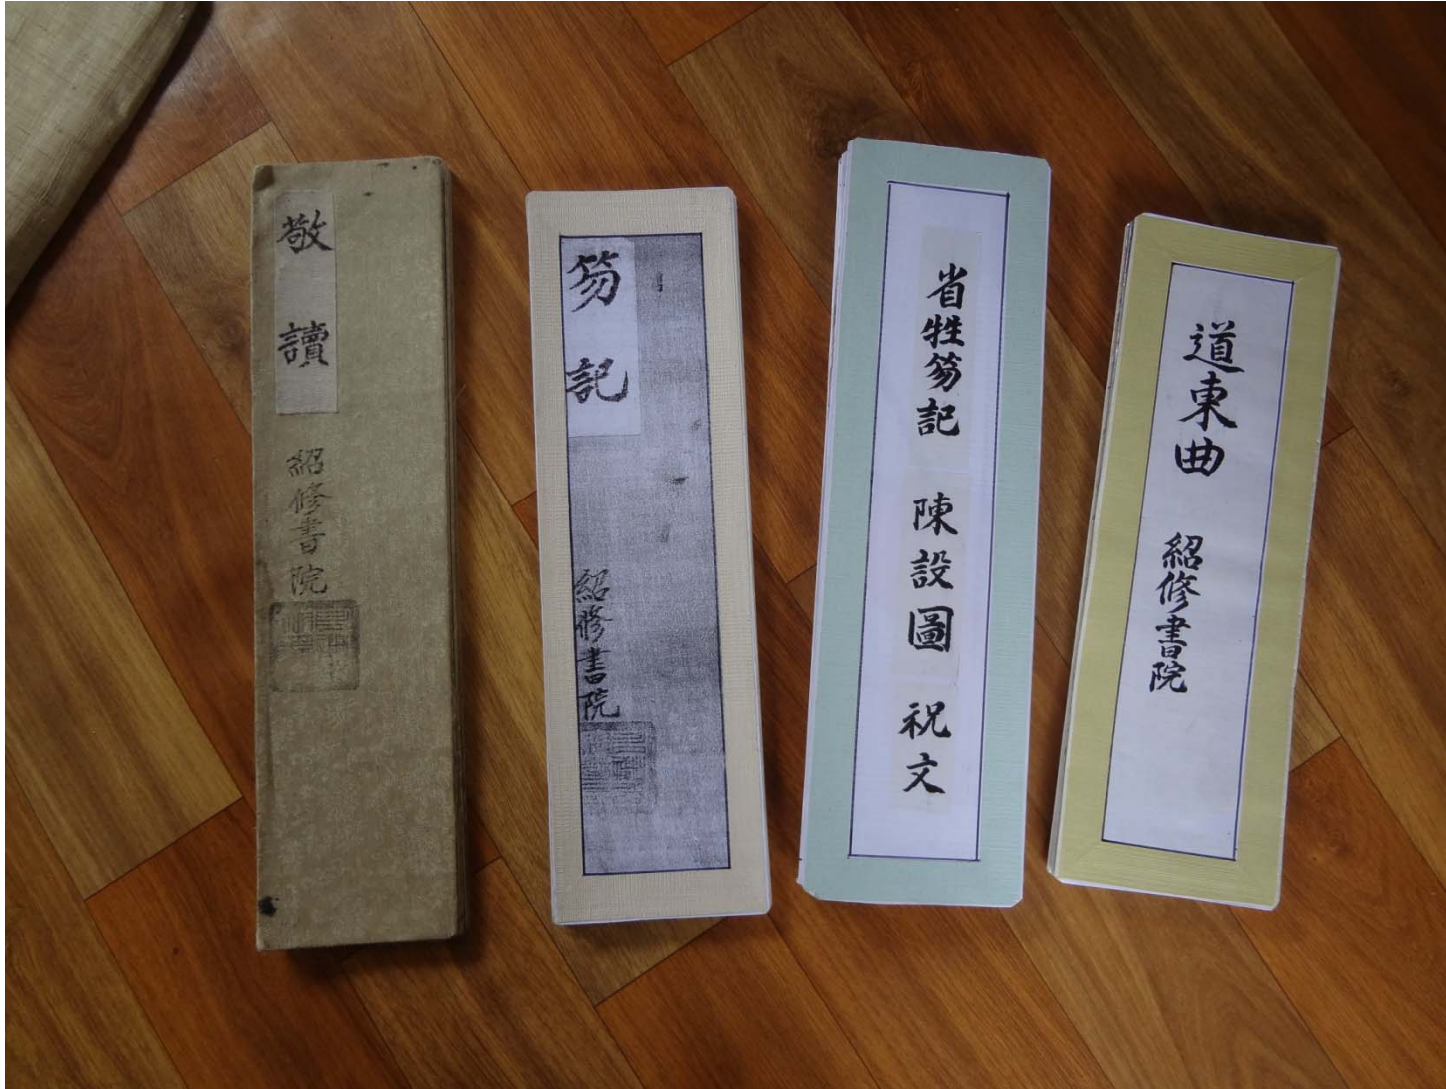 敬讀
紹修書院
笏記
紹修書院
省牲笏記
陳設圖
祝文
道東曲
紹修書院